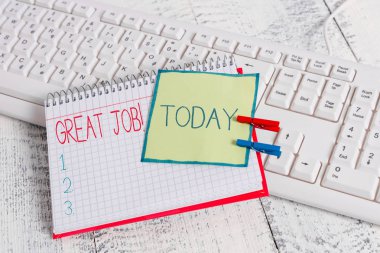 GREAT JOB!
TODAY
1
2
3